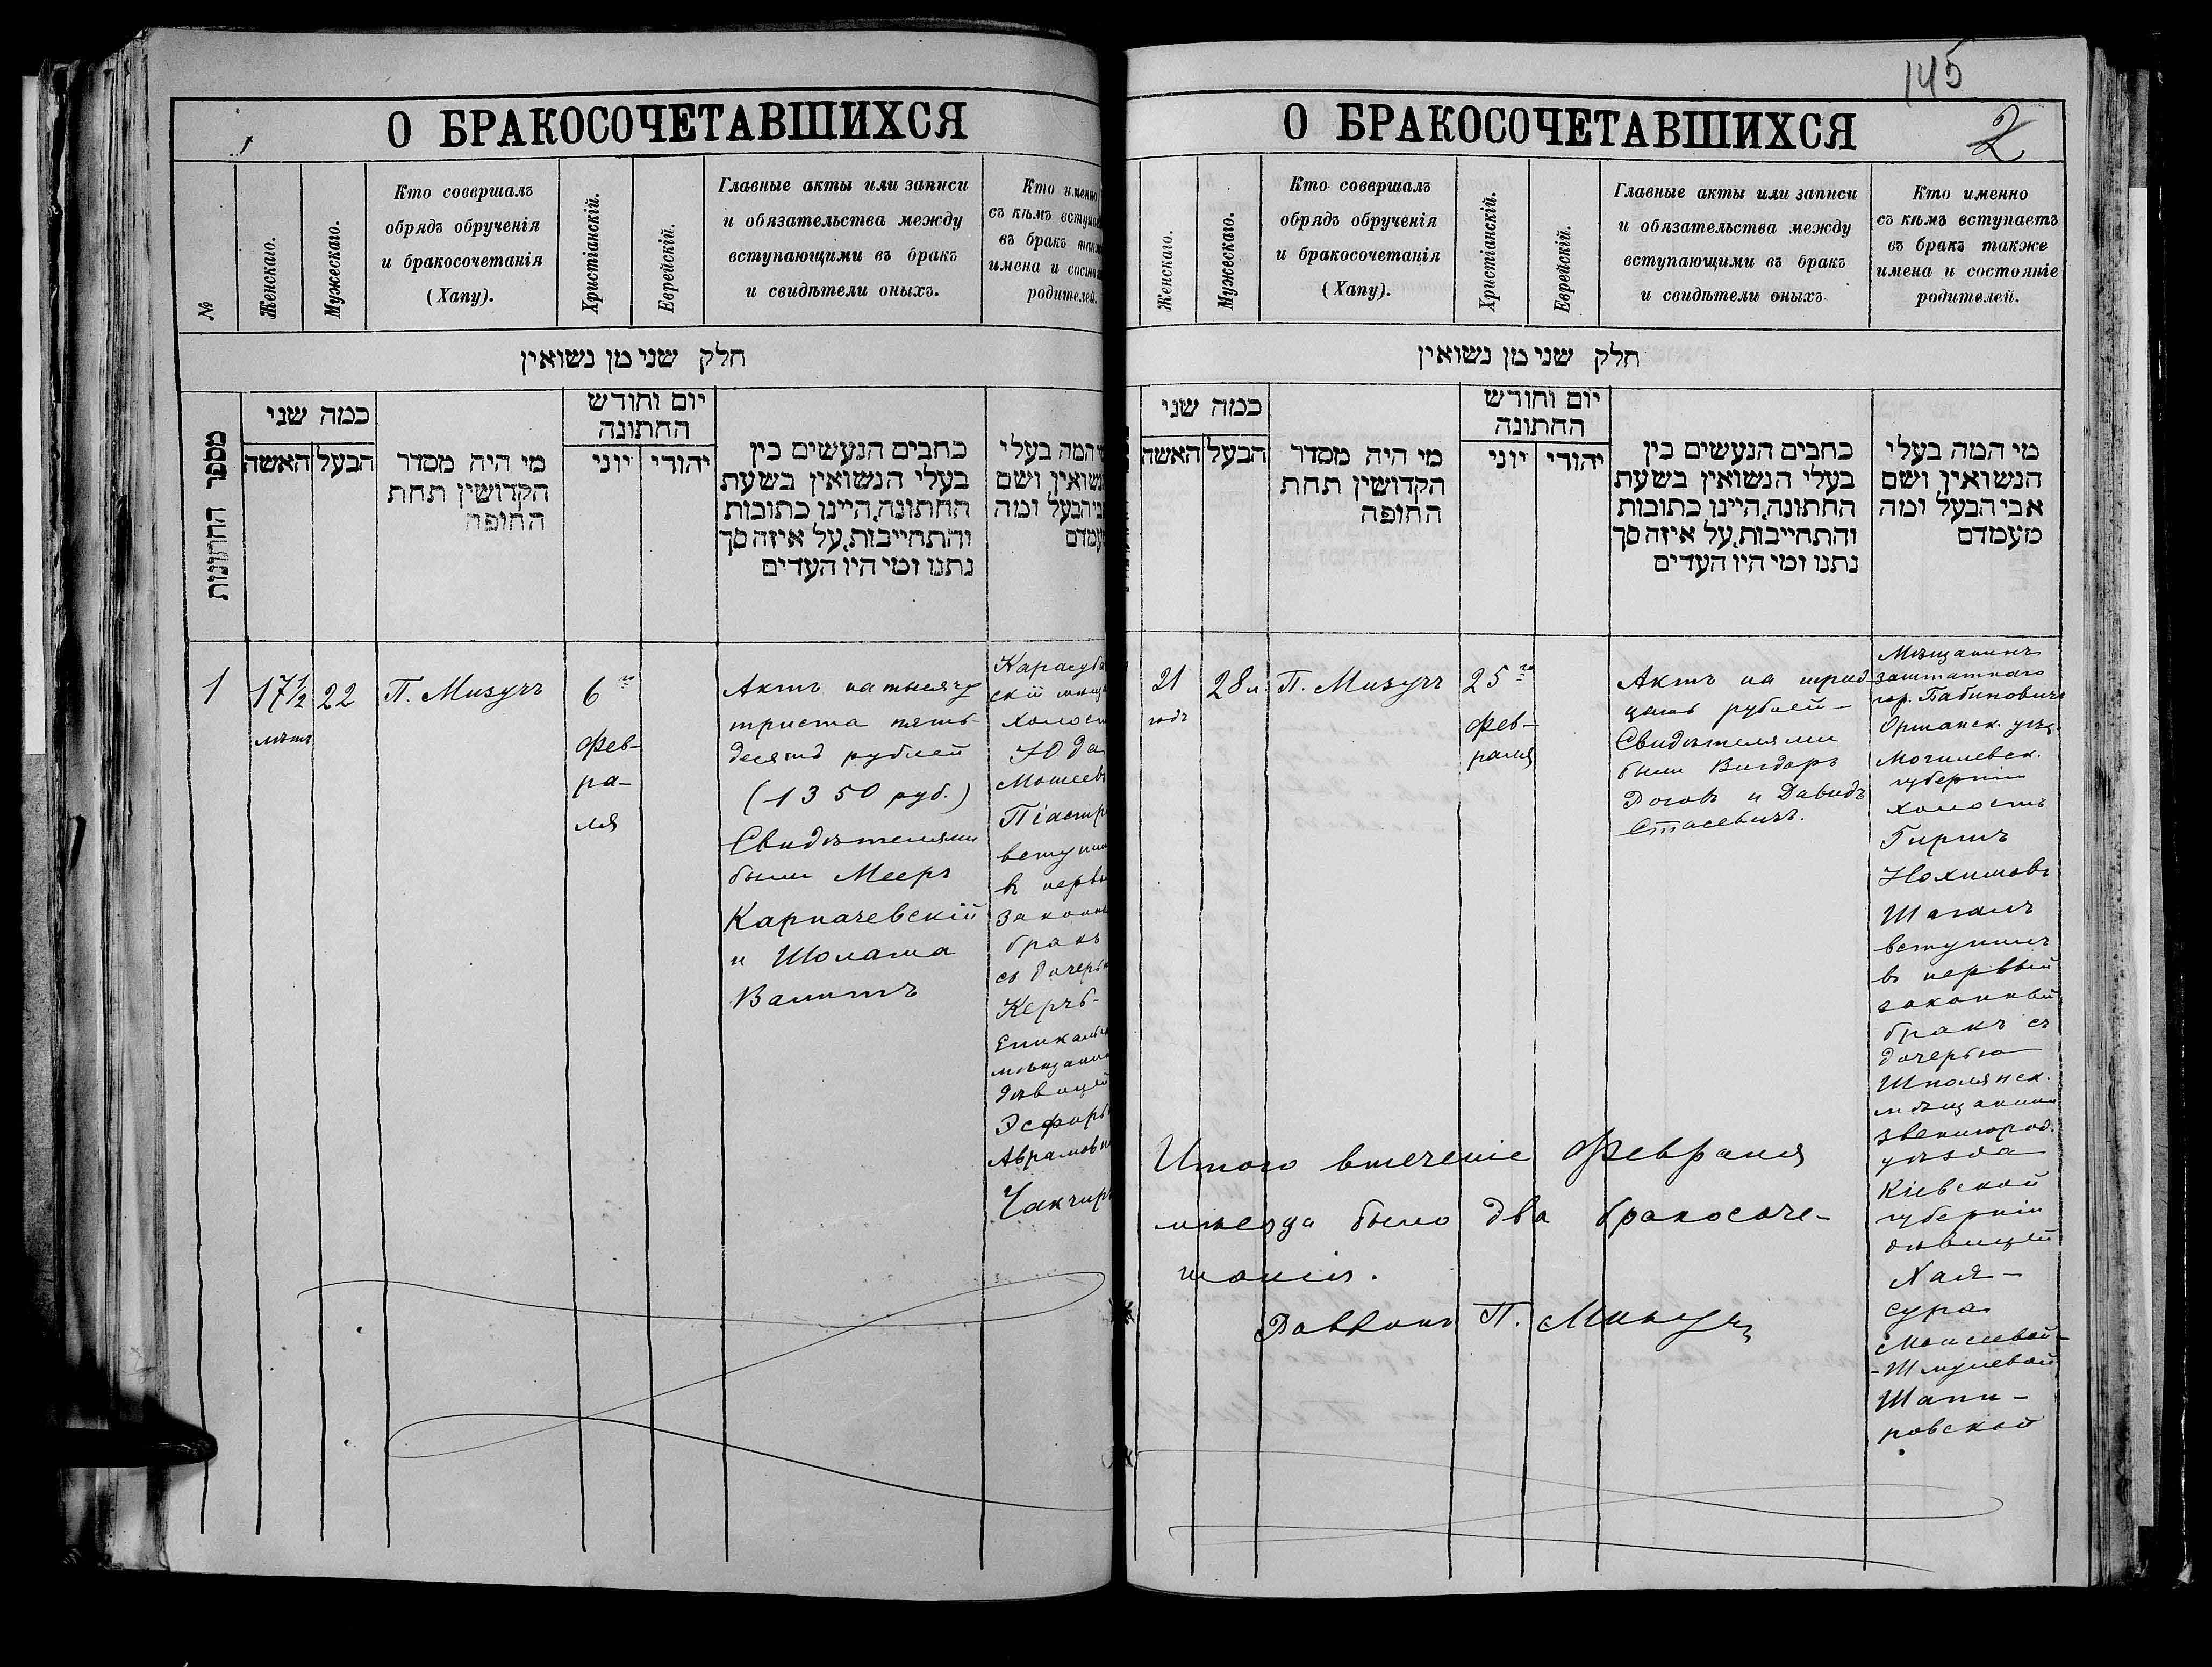 О БРАКОСОЧЕТАВШИХСЯ
№
Женскаго.
Мужескаго.
Кто совершалъ
обрядъ обрученія
и бракосочетанія
(Хапу).
Христіанскій.
Еврейскій.
Главные акты или записи
и обязательства между
вступающими въ бракъ
и свидѣтели оныхъ.
Кто именно
съ кѣмъ
въ бракъ
имена и
родителей.
חלק שני מן נשואין
מספר החתונות
כמה שני
האשה
הבעל
מי היה מסדר
הקדושין תחת
החופה
יום וחודש
החתונה
יוני
יהודי
כתבים הנעשים בין
בעלי הנשואין בשעת
החתונה, היינו כתובות
והתחייבות, על איזה סך
נתנו ומי היו העדים
המה בעלי
ושם
ומה
1
17½
лѣтъ
22
П. Мизучъ
6го
Фев-
ра-
ля
Актъ на тысячу
триста пять-
десятъ рублей
(1350 руб.)
Свидѣтелями
были Мееръ
Карпачевскій
и Шолама
Валитъ
скій
Юда
въ
бракъ
съ дочерью
Керчь-
145
О БРАКОСОЧЕТАВШИХСЯ
2
Женскаго.
Мужескаго.
Кто совершалъ
обрядъ обрученія
и бракосочетанія
(Хапу).
Христіанскій.
Еврейскій.
Главные акты или записи
и обязательства между
вступающими въ бракъ
и свидѣтели оныхъ.
Кто именно
съ кѣмъ вступаетъ
въ бракъ также
имена и состояніе
родителей.
חלק שני מן נשואין
כמה שני
האשה
הבעל
מי היה מסדר
הקדושין תחת
החופה
יום וחודש
החתונה
יוני
יהודי
כתבים הנעשים בין
בעלי הנשואין בשעת
החתונה, היינו כתובות
והתחייבות, על איזה סך
נתנו ומי היו העדים
מי המה בעלי
הנשואין ושם
אבי הבעל ומה
מעמדם
21
годъ
28 л.
П. Мизучъ
25го
Фев-
раля
Актъ на трид-
цать рублей -
Свидѣтелями
были Вигдоръ
Роговъ и Давидъ
Стасевичъ.
Мѣщанинъ
заштатнаго
гор. Бабиновичъ
Оршанск. уѣз.
Могилевск.
губерніи
холостъ
Гиршъ
Нохимовъ
Шагалъ
вступилъ
въ первый
законный
бракъ съ
дочерью
Шполянск.
мѣщанина
Звенигород.
уѣзда
Кіевской
губерніи
дѣвицей
Хая-
Сура
Моисеевой-
-Шмулевой
Шапи-
ровской
Итого втеченіе Февраля
мѣсяца было два бракосоче-
танія.
Раввинъ П. Мизучъ